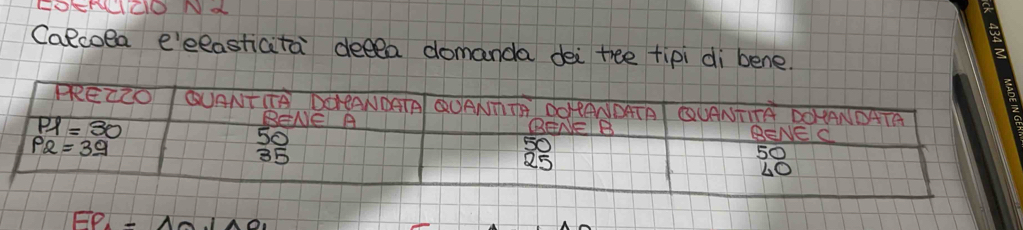 ESERCIZIO N 2
Calcola l'elasticità della domanda dei tre tipi di bene.
PREZZO QUANTITÀ DOMANDATA BENE A QUANTITÀ DOMANDATA BENE B QUANTITÀ DOMANDATA BENE C
P1 = 30 50 50 50
P2 = 39 35 25 40
434 M MADE IN GERM